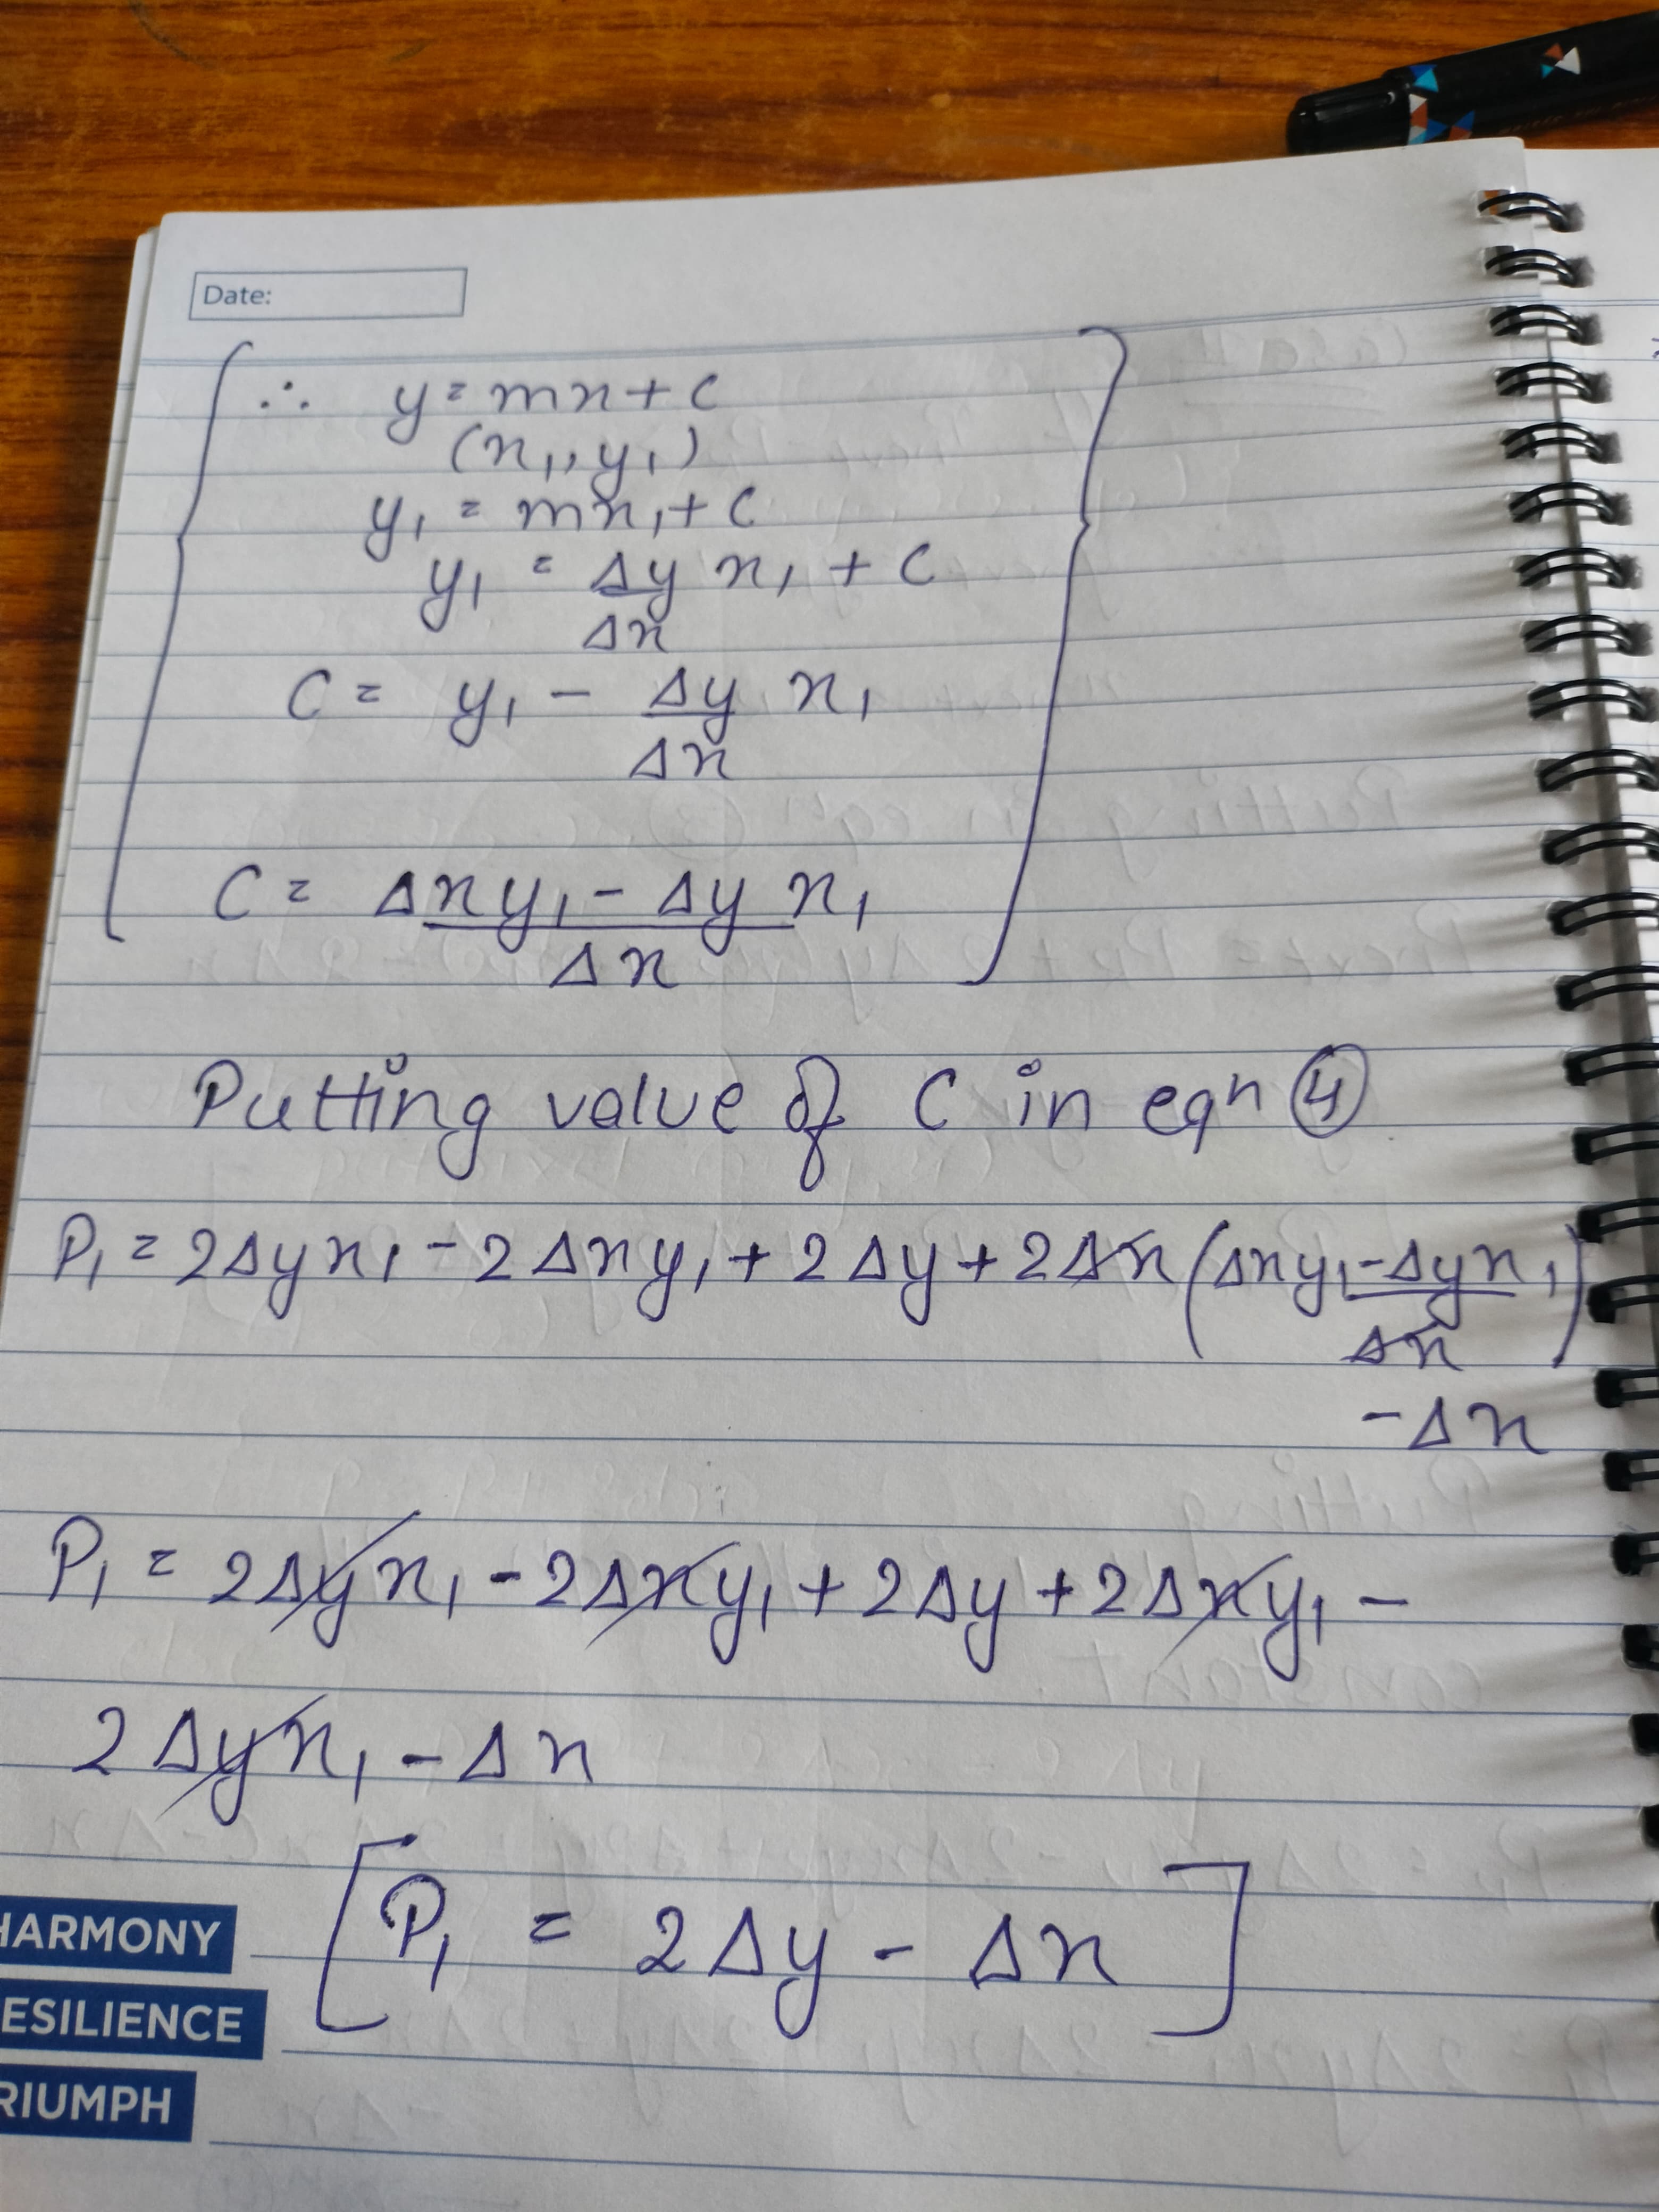 Date:
∴ y = mx + c
(x₁, y₁)
y₁ = mx₁ + c
y₁ = Δy x₁ + c
Δx
C = y₁ - Δy x₁
Δx
C = Δxy₁ - Δy x₁
Δx
Putting value of C in eqn ④
P₁ = 2Δyx₁ - 2Δxy₁ + 2Δy + 2Δx (Δxy₁ - Δyx₁)
Δx
- Δx
P₁ = 2Δyx₁ - 2Δxy₁ + 2Δy + 2Δxy₁ -
2Δyx₁ - Δx
[P₁ = 2Δy - Δx]
HARMONY
ESILIENCE
RIUMPH